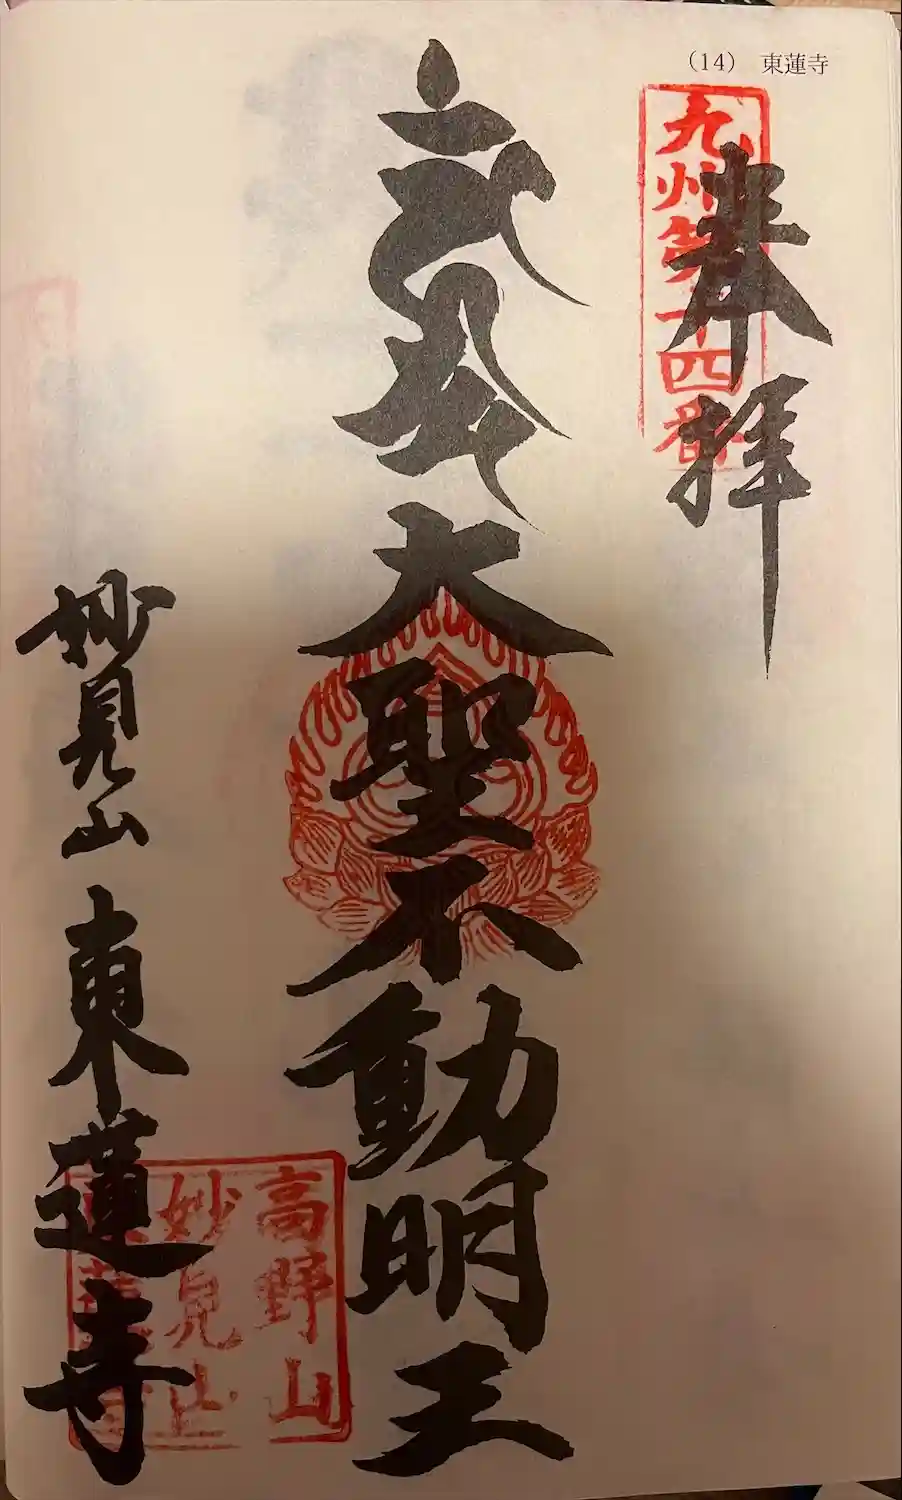 (14) 東蓮寺
九州第十四番
奉拝
大聖不動明王
妙見山 東蓮寺
高野山
妙見山
東蓮寺